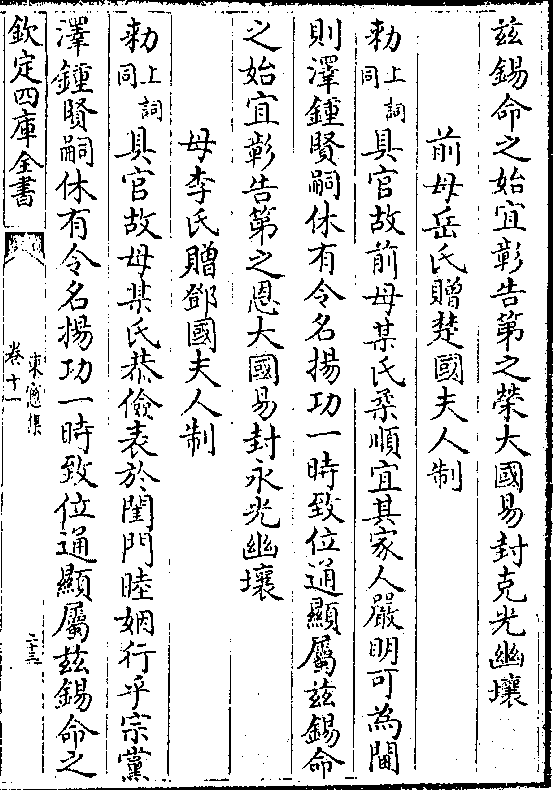 兹錫命之始宜彰告第之榮大國易封克光幽壤
前母岳氏贈楚國夫人制
勅上詞同具官故前母某氏柔順宜其家人嚴明可為閫
則澤鍾賢嗣休有令名揚功一時致位通顯屬兹錫命
之始宜彰告第之恩大國易封永光幽壤
母李氏贈鄧國夫人制
勅上詞同具官故母某氏恭儉表於閨門睦姻行乎宗黨
澤鍾賢嗣休有令名揚功一時致位通顯屬兹錫命之
欽定四庫全書
東窻集
卷十一
二十三